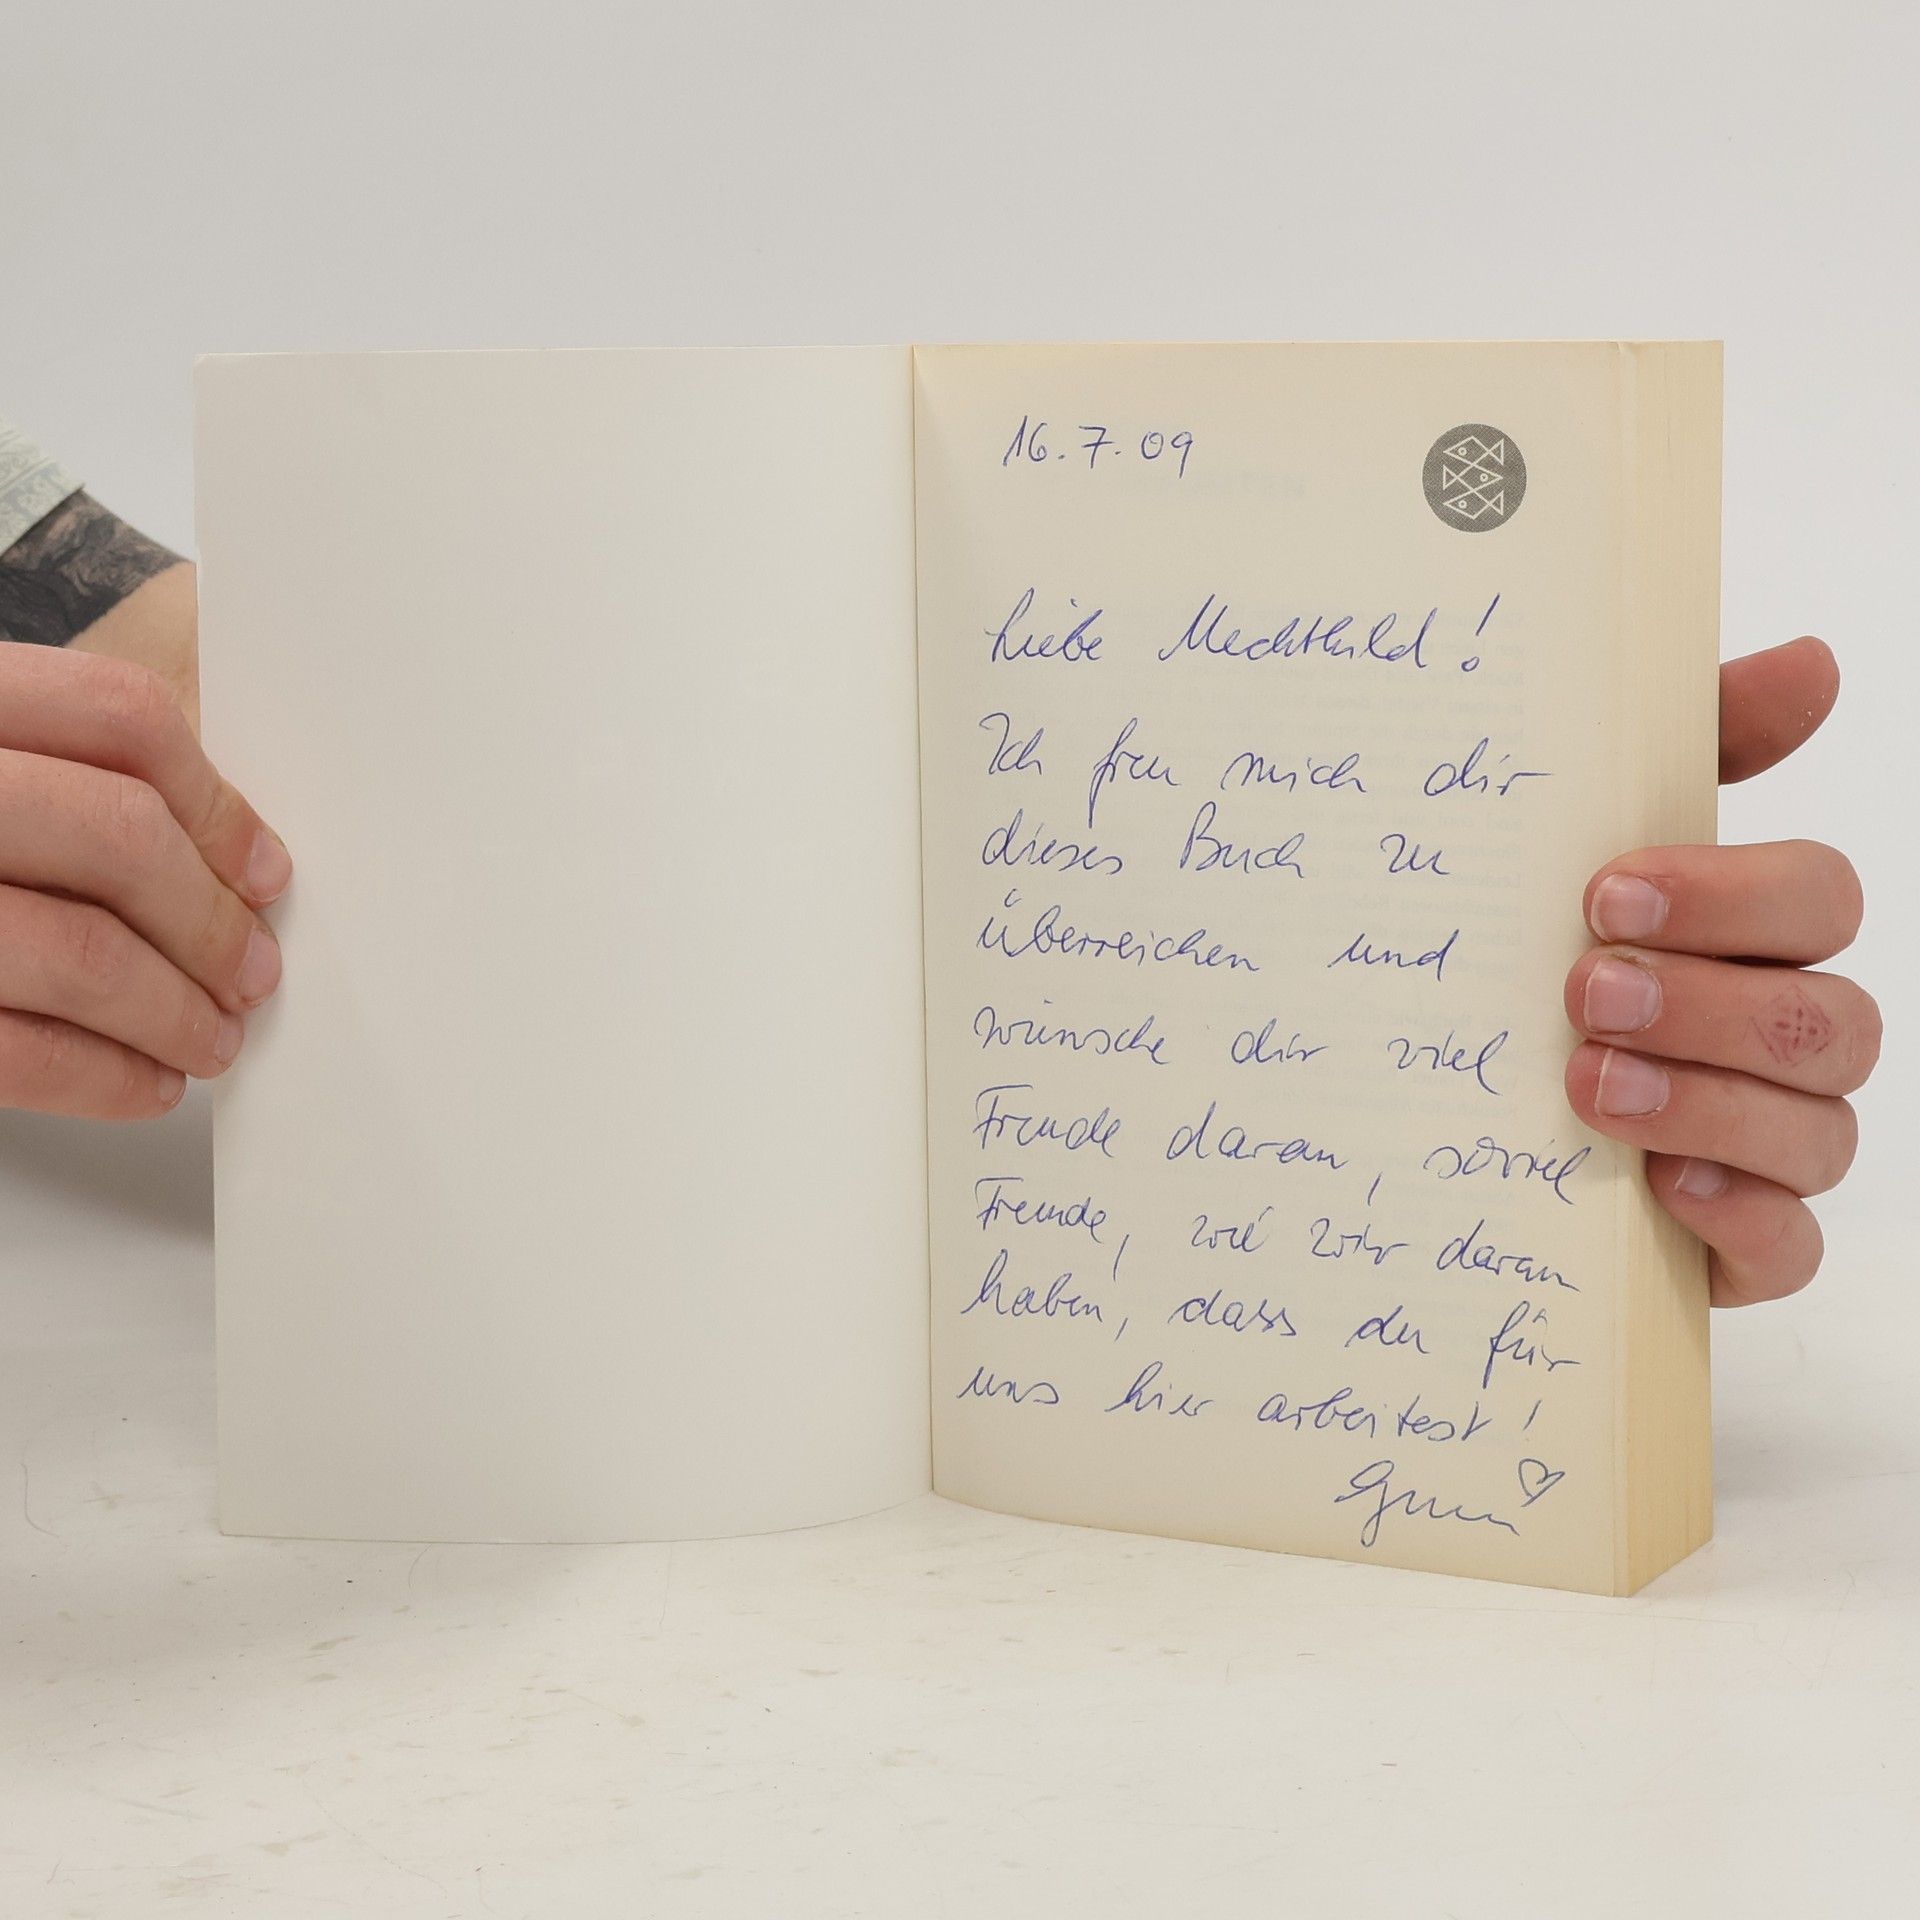 16.7.09
Liebe Mechthild!
Ich freu mich dir
dieses Buch zu
überreichen und
wünsche dir viel
Freude daran, soviel
Freude, wie wir daran
haben, dass du für
uns hier arbeitest!